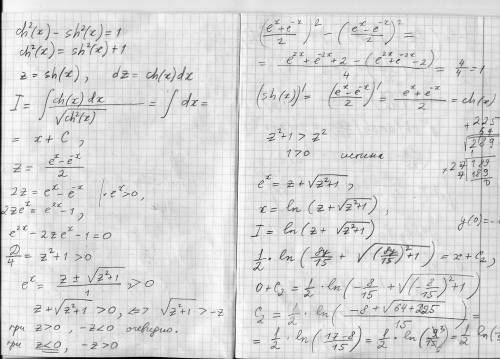 ch²(x) - sh²(x) = 1
ch²(x) = sh²(x) + 1
z = sh(x), dz = ch(x)dx
I = ∫ ch(x) dx / √ch²(x) = ∫ dx =
= x + C,
z = (eˣ - e⁻ˣ)/2
2z = eˣ - e⁻ˣ | · eˣ > 0,
2zeˣ = e²ˣ - 1,
e²ˣ - 2zeˣ - 1 = 0
D/4 = z² + 1 > 0
eˣ = (z ± √(z²+1))/1 > 0
z + √(z²+1) > 0, <=> √(z²+1) > -z
при z > 0, -z < 0 очевидно.
при z ≤ 0, -z > 0
((eˣ + e⁻ˣ)/2)² - ((eˣ - e⁻ˣ)/2)² =
= (e²ˣ + e⁻²ˣ + 2 - (e²ˣ + e⁻²ˣ - 2))/4 = 4/4 = 1
(sh(x))' = ((eˣ - e⁻ˣ)/2)' = (eˣ + e⁻ˣ)/2 = ch(x)
z² + 1 > z²
1 > 0 истина
+ 225
64
289
eˣ = z + √(z²+1),
x = ln(z + √(z²+1)),
I = ln(z + √(z²+1))
y(0) = -1
1/2 · ln(8y/15 + √((8y/15)² + 1)) = x + C₂,
0 + C₂ = 1/2 · ln(-8/15 + √((-8/15)² + 1))
C₂ = 1/2 · ln((-8 + √(64 + 225))/15) =
= 1/2 · ln((17-8)/15) = 1/2 · ln(9/15) = 1/2 ln